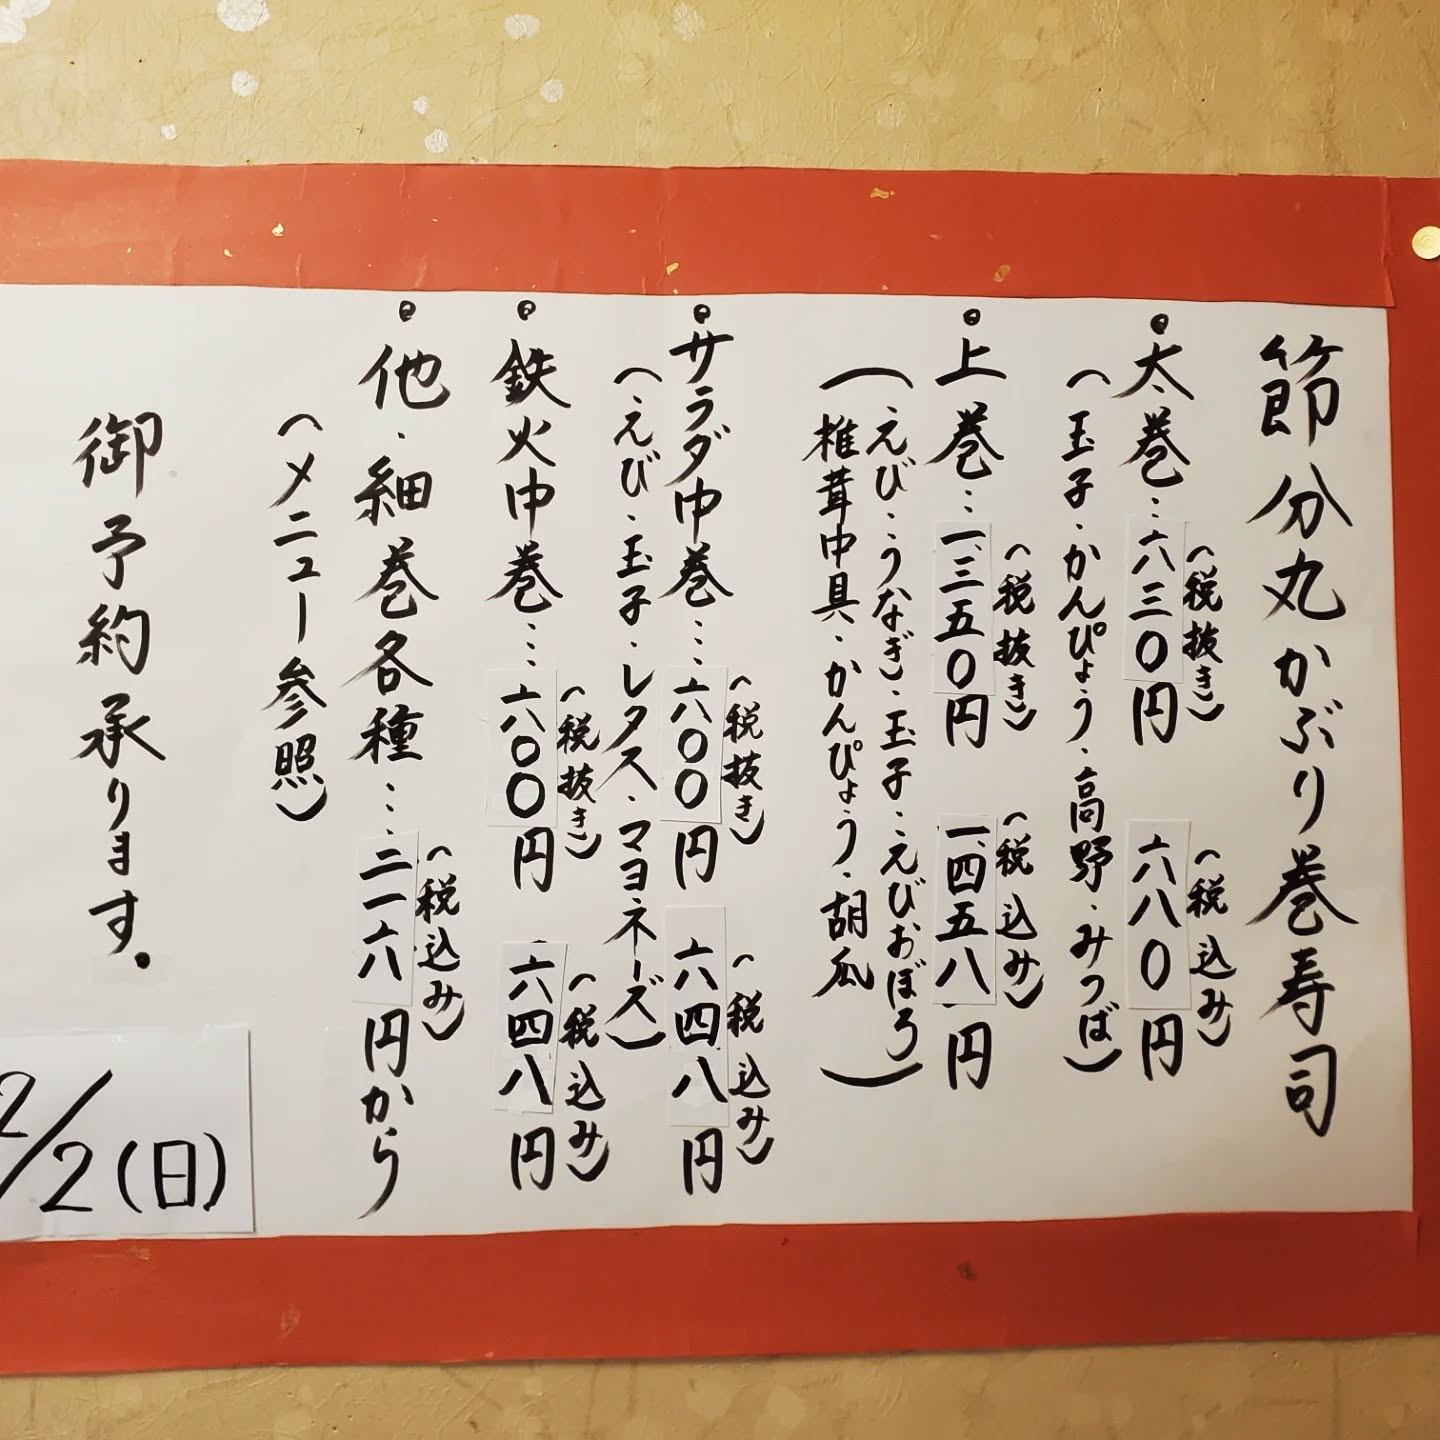 節分丸かぶり巻寿司
・太巻…六三〇円 六八〇円
(税抜き) (税込み)
(玉子・かんぴょう・高野・みつば)
・上巻…一、三五〇円 一、四五八円
(税抜き) (税込み)
(・えび・うなぎ・玉子・えびおぼろ
椎茸中具・かんぴょう・胡瓜)
・サラダ中巻…六〇〇円 六四八円
(税抜き) (税込み)
(・えび・玉子・レタス・マヨネーズ)
・鉄火中巻…六〇〇円 六四八円
(税抜き) (税込み)
・他・細巻各種…二一六円から
(税込み)
(メニュー参照)
御予約承ります。
2/2(日)